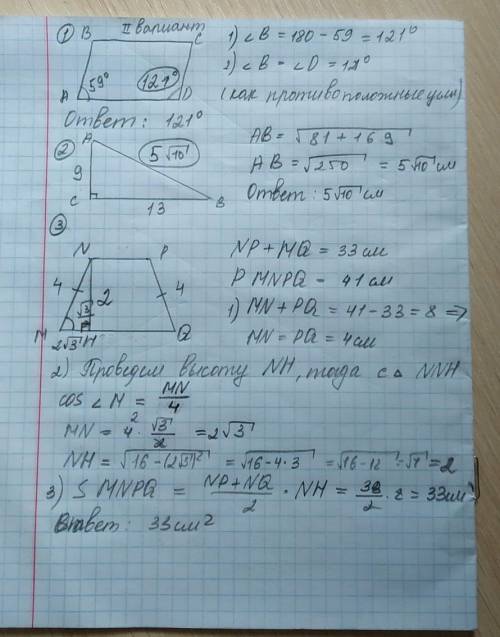 ① II вариант
B C
A 59° 121° D
1) ∠B = 180 - 59 = 121°
2) ∠B = ∠D = 121°
(как противоположные углы)
Ответ: 121°
②
A
9 5√10
C 13 B
AB = √81 + 169
AB = √250 = 5√10 см
Ответ: 5√10 см
③
N P
4 2 4
M H Q
2√3
NP + MQ = 33 см
P MNPQ - 41 см
1) MN + PQ = 41 - 33 = 8 =>
MN = PQ = 4 см
2) Проведем высоту NH, тогда с △ NNH
cos ∠ M = MN/4
MN = 4 · √3/2 = 2√3
NH = √16 - (2√3)² = √16 - 4·3 = √16 - 12 = √4 = 2
3) S MNPQ = NP + NQ/2 · NH = 33/2 · 2 = 33 см²
Ответ: 33 см²